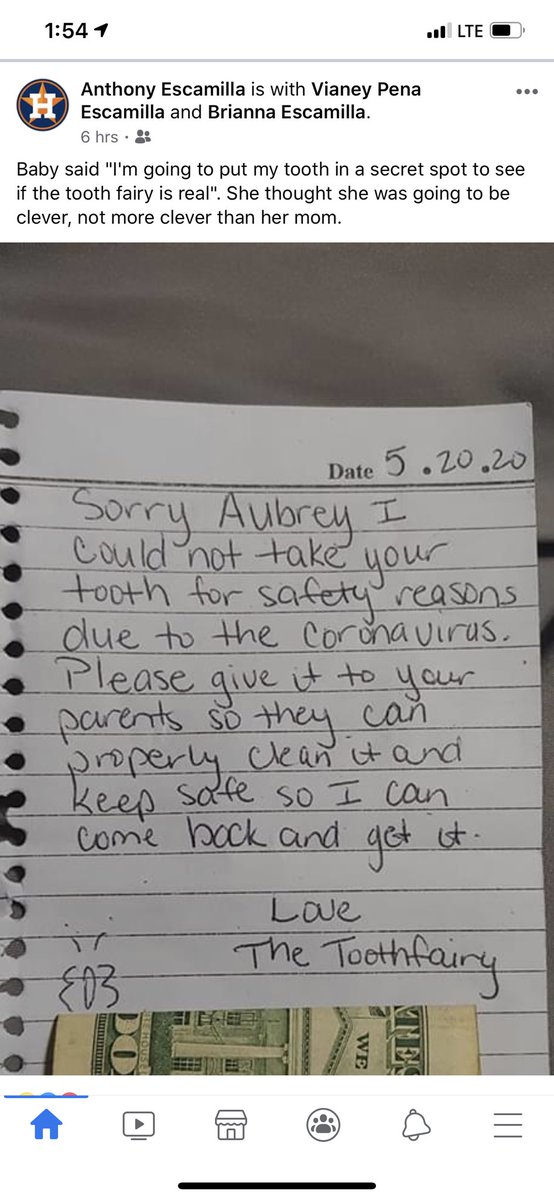 1:54
LTE
H
Anthony Escamilla is with Vianey Pena
Escamilla and Brianna Escamilla.
6 hrs ·
Baby said "I'm going to put my tooth in a secret spot to see
if the tooth fairy is real". She thought she was going to be
clever, not more clever than her mom.
Date 5.20.20
Sorry Aubrey I
could not take your
tooth for safety reasons
due to the coronavirus.
Please give it to your
parents so they can
properly clean it and
keep safe so I can
come back and get it.
Love
The Toothfairy
WE